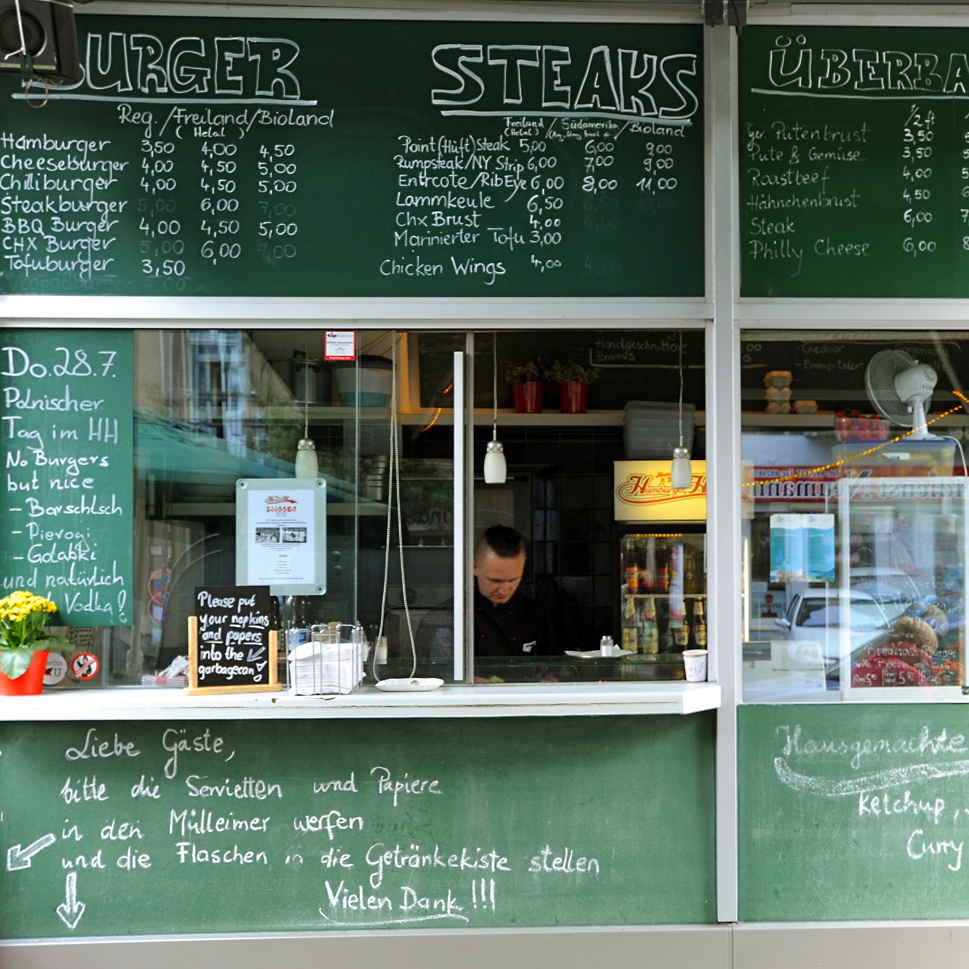 BURGER
Reg./Freiland/Bioland
(Helal)
Hamburger 3,50 4,00 4,50
Cheeseburger 4,00 4,50 5,00
Chilliburger 4,00 4,50 5,00
Steakburger 5,00 6,00 7,00
BBQ Burger 4,00 4,50 5,00
CHX Burger 5,00 6,00
Tofuburger 3,50
STEAKS
Freiland Südamerika Bioland
(Helal)
Point (Hüft) Steak 5,00 6,00 9,00
Rumpsteak/NY Strip 6,00 7,00 9,00
Entrcote/RibEye 6,00 8,00 11,00
Lammkeule 6,50
Chx Brust 4,00
Marinierter Tofu 3,00
Chicken Wings 4,00
ÜBERBA
Putenbrust 3,50
Pute & Gemüse 3,50
Roastbeef 4,00
Hähnchenbrust 4,50
Steak 6,00
Philly Cheese 6,00
Do. 28.7.
Polnischer
Tag im HH
No Burgers
but nice
- Barschtsch
- Pierogi
- Gołabki
und natürlich
Vodka!
Handgeschnittene
Pommes
Hamburger
Please put
your napkins
and papers
into the
garbagecan
Breakfast Burger
Liebe Gäste,
bitte die Servietten und Papiere
in den Mülleimer werfen
und die Flaschen in die Getränkekiste stellen
Vielen Dank!!!
Hausgemachte
Ketchup,
Curry